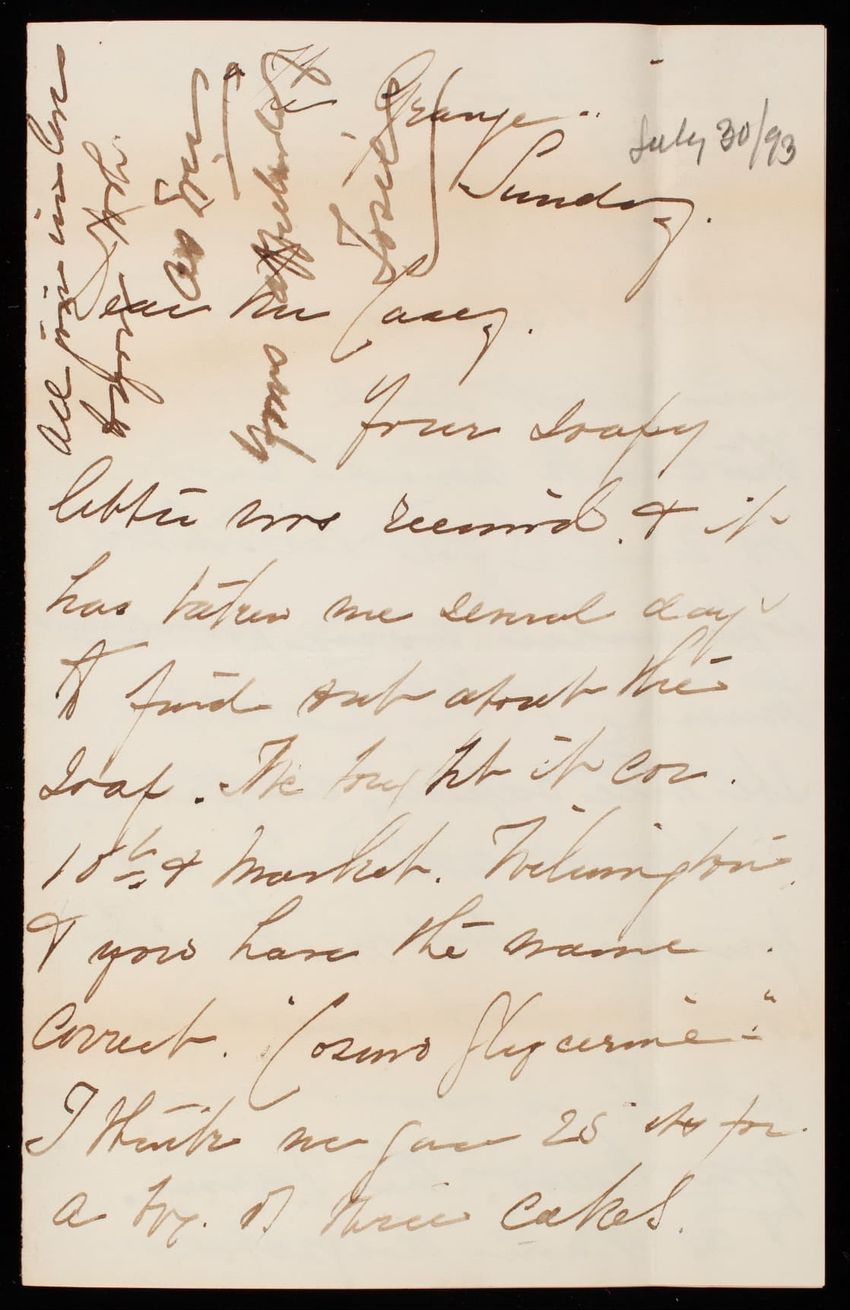 The Grange.
July 30/93
Sunday.
Dear Mr Casey.
Your soapy
letter was received. & it
has taken me several days
to find out about the
soap. We bought it cor.
10th & Market. Wilmington.
& you have the name
correct. "Cosmo Glycerine"
I think we gave 25 cts for
a box. of three cakes.
All join in love
to you both.
as Ever
Yours affectionately
Josie